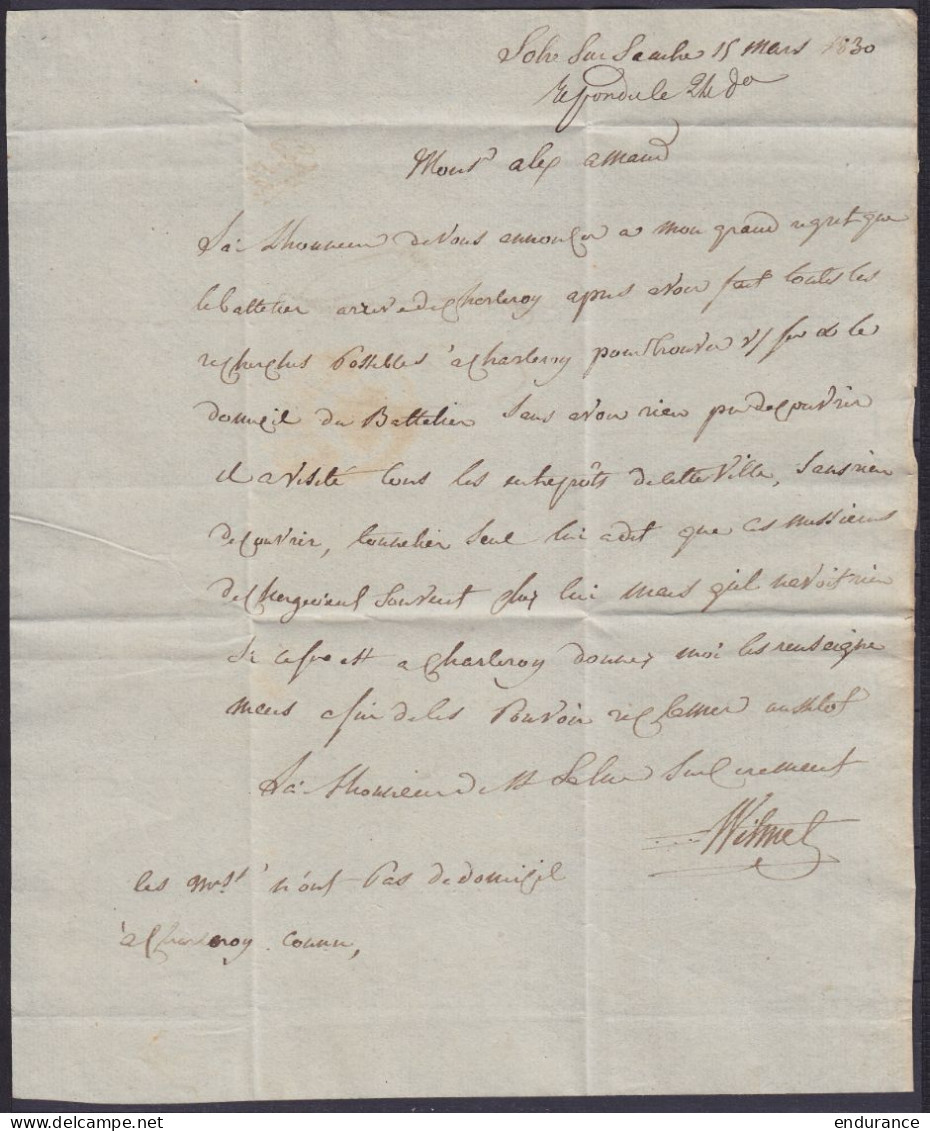 Solre Sur Sambre 15 mars 1830
Repondu le 24 do
Monsr alex amand
J'ai Lhonneur de vous annoncer a mon grand regret que
le battelier arrive de Charleroy apres avoir fait toutes les
recherches Possibles a Charleroy pour trouver v/ fer & le
domicil du Battelier Sans avoir rien pu decouvrir
il a visité tous les entrepôts de cette Ville, Sans rien
decouvrir, tonnelier Seul lui a dit que ces messieurs
dechargeoient Souvent chez lui mais qu'il n'avoit rien
Si ce fer est a Charleroy donnez moi les renseigne
mens afin de les Pouvoir reclamer aussitot
J'ai Lhonneur de Saluer Sincerement
Wilmet
les Mrs n'ont Pas de domicil
a Charleroy connu,
endurance